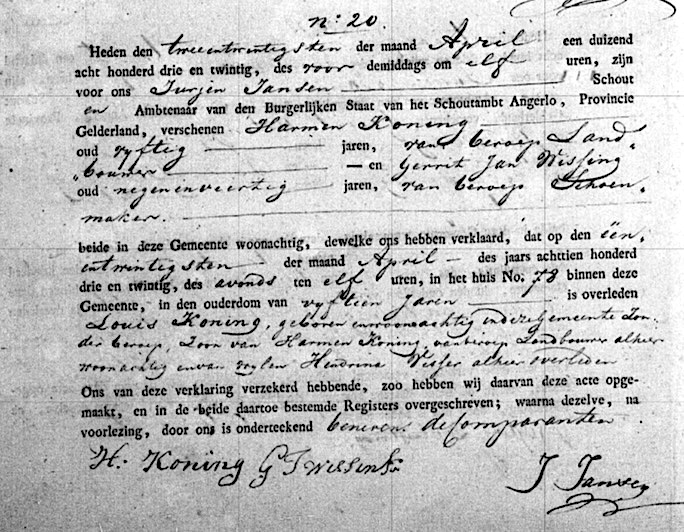 n: 20.
Heden den tweeentwintigsten der maand April een duizend
acht honderd drie en twintig, des voor demiddags om elf uren, zijn
voor ons Jurjen Jansen Schout
en Ambtenaar van den Burgerlijken Staat van het Schoutambt Angerlo, Provincie
Gelderland, verschenen Harmen Koning
oud vyftig jaren, van beroep Land„
„bouwer — en Gerrit Jan Wissing
oud negenenveertig jaren, van beroep Schoen„
maker.
beide in deze Gemeente woonachtig, dewelke ons hebben verklaard, dat op den één„
entwintigsten der maand April — des jaars achttien honderd
drie en twintig, des avonds ten elf uren, in het huis No. 78 binnen deze
Gemeente, in den ouderdom van vyftien Jaren is overleden
Louis Koning, geboren en woonachtig in deze Gemeente Zon„
der beroep, Zoon van Harmen Koning, van beroep Landbouwer alhier
woonachtig en van wylen Hendrina Visser alhier overleden
Ons van deze verklaring verzekerd hebbende, zoo hebben wij daarvan deze acte opge-
maakt, en in de beide daartoe bestemde Registers overgeschreven; waarna dezelve, na
voorlezing, door ons is onderteekend benevens de Comparanten
H: Koning G J Wissink
J Jansen